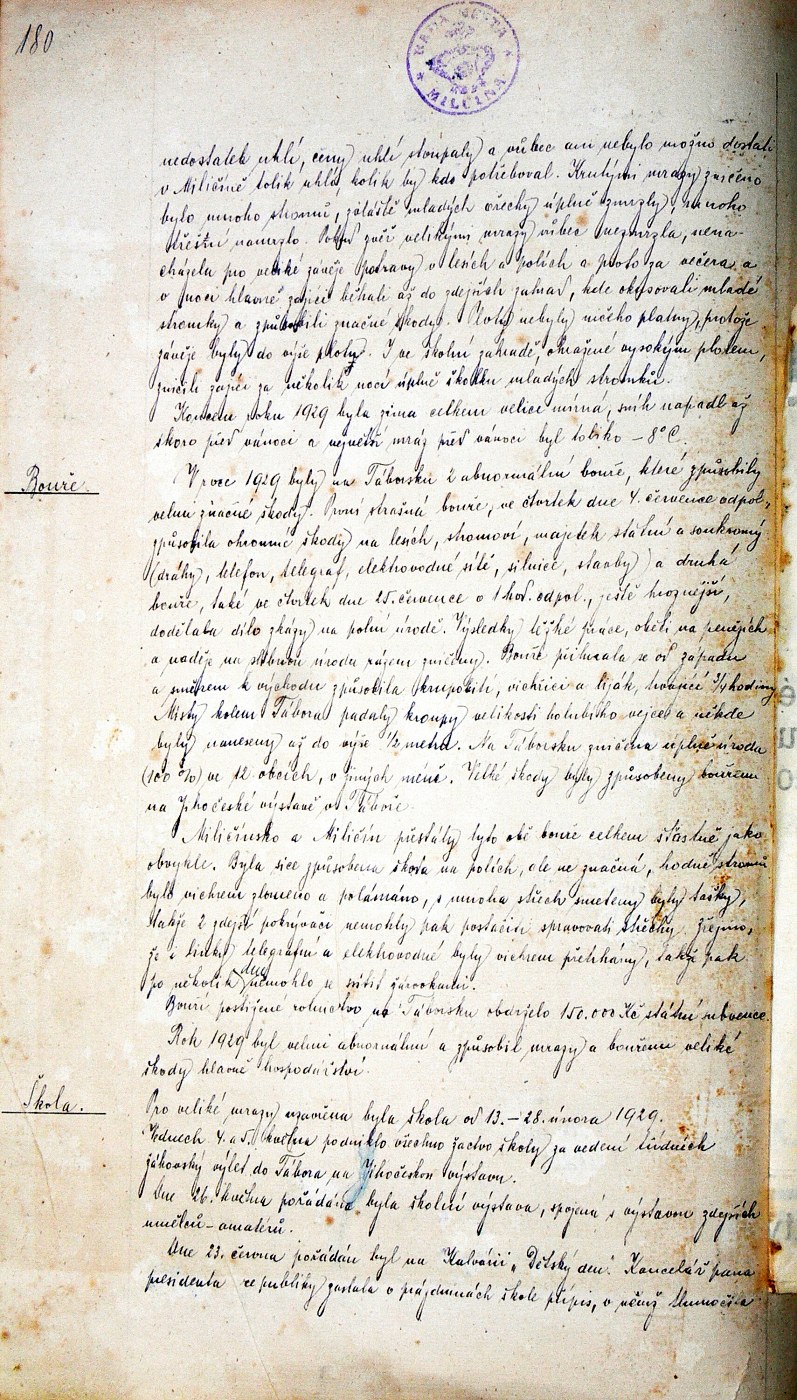 180
RADA MĚSTA
MILČÍNA
nedostatek uhlí, ceny uhlí stoupaly a vůbec ani nebylo možno dostati
v Miličíně tolik uhlí, kolik by kdo potřeboval. Krutými mrazy zničeno
bylo mnoho stromů, zvláště mladých ořechy úplně zmrzly, mnoho
třešní namrzlo. Pokud zvěř velikými mrazy vůbec nezmrzla, nena-
cházela pro veliké závěje potravy v lesích a polích a proto za večera a
v noci hlavně zajíci běhali až do zdejších zahrad, kde okusovali mladé
stromky a způsobili značné škody. Ploty nebyly ničeho platny, protože
závěje byly do výše plotů. I ve školní zahradě, ohražené vysokým plotem,
zničili zajíci za několik nocí úplně školku mladých stromků.
Koncem roku 1929 byla zima celkem velice mírná, sníh napadl až
skoro před vánoci a největší mráz před vánoci byl toliko – 8° C.
Bouře.
V roce 1929 byly na Táborsku 2 abnormální bouře, které způsobily
velmi značné škody. První strašná bouře, ve čtvrtek dne 4. července odpol.,
způsobila ohromné škody na lesích, stromoví, majetek státní a soukromý
(dráhy, telefon, telegraf, elektrovodné sítě, silnice, stavby) a druhá
bouře, také ve čtvrtek dne 25. července o 1 hod. odpol., ještě hroznější,
dodělala dílo zkázy na polní úrodě. Výsledky těžké práce, oběti na penězích
a naděje na slibnou úrodu rázem zničeny. Bouře přihnala se od západu
a směrem k východu způsobila krupobití, vichřici a liják, trvající 3/4 hodiny.
Místy kolem Tábora padaly kroupy velikosti holubího vejce a někde
byly naneseny až do výše 1/2 metru. Na Táborsku zničena úplně úroda
(100 %) ve 12 obcích, v jiných méně. Velké škody byly způsobeny bouřemi
na Jihočeské výstavě v Táboře.
Miličínsko a Miličín přestály tyto obě bouře celkem šťastně jako
obvykle. Byla sice způsobena škoda na polích, ale ne značná, hodně stromů
bylo vichrem zlomeno a polámáno, s mnoha střech smeteny byly tašky,
takže 2 zdejší pokrývači nemohly pak postačiti spravovati střechy. Zřejmo,
že i linky telegrafní a elektrovodné byly vichrem přetrhány, takže pak
po několik dnů nemohlo se svítit žárovkami.
Bouří postižené rolnictvo na Táborsku obdrželo 150.000 Kč státní subvence.
Rok 1929 byl velmi abnormální a způsobil mrazy a bouřemi veliké
škody hlavně hospodářství.
Škola.
Pro veliké mrazy uzavřena byla škola od 13. – 28. února 1929.
Ve dnech 4. a 5. května podniklo všechno žactvo školy za vedení
žákovský výlet do Tábora na Jihočeskou výstavu.
Dne 26. května pořádána byla školní výstava, spojená s výstavou zdejších
umělců – amatérů.
Dne 23. června pořádán byl na Kalvárii „Dětský den“. Kancelář pana
presidenta republiky zaslala o prázdninách škole přípis, v němž tlumočila